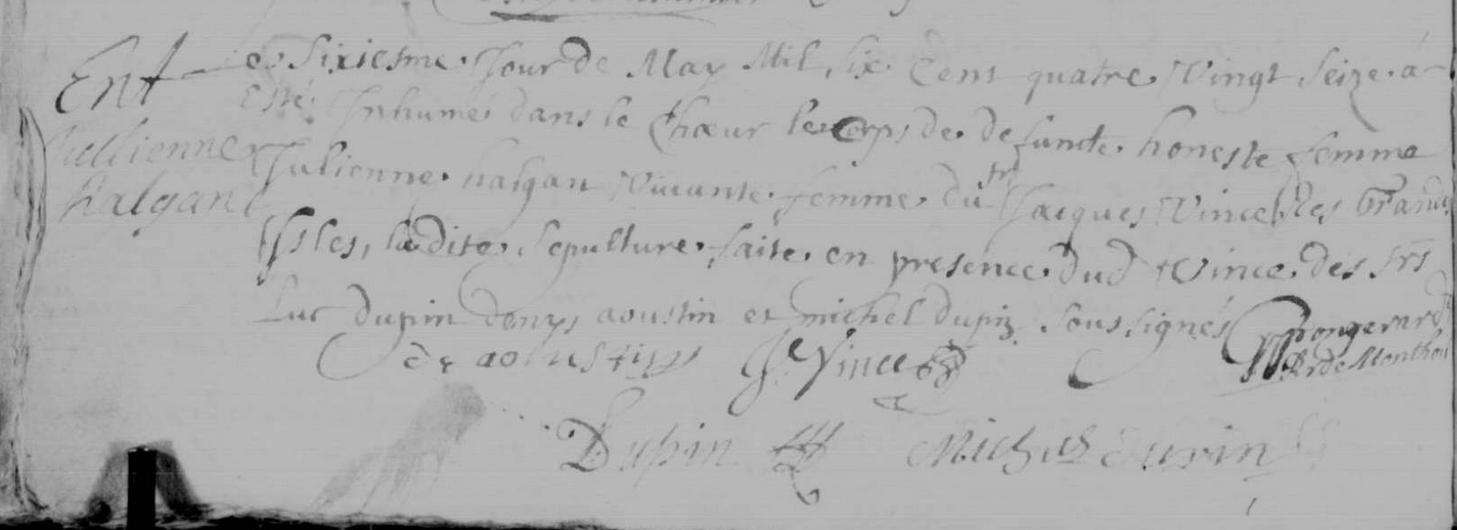 Ent
Jullienne
halgan
Le sixiesme jour de May Mil six Cent quatre vingt seize a
Esté Inhumé dans le Chœur le corps de defuncte honeste femme
Julienne halgan vivante femme du sr Jacques Vince des Grands
Isles, ladite sepulture faite en presence dud Vince des srs
Luc dupin denys aoustin et michel dupin soussignés
de aoustin J Vince
Rongerard
Rr de Monthou
Dupin Michel Dupin